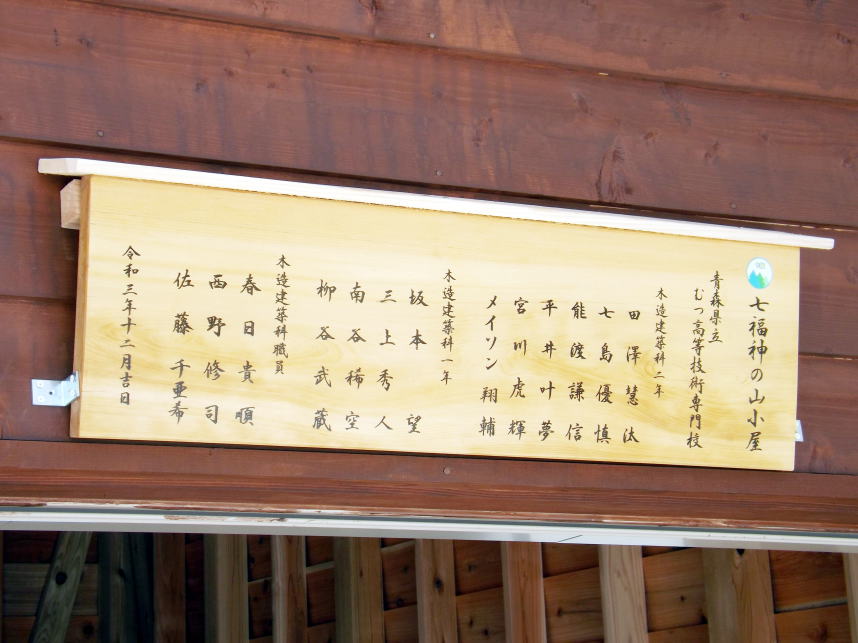 七福神の山小屋
青森県立
むつ高等技術専門校
木造建築科二年
田澤慧汰
七島優慎
能渡謙信
平井叶夢
宮川虎輝
メイソン翔輔
木造建築科一年
坂本望
三上秀人
南谷稀空
柳谷武蔵
木造建築科職員
春日貴順
西野修司
佐藤千亜希
令和三年十二月吉日